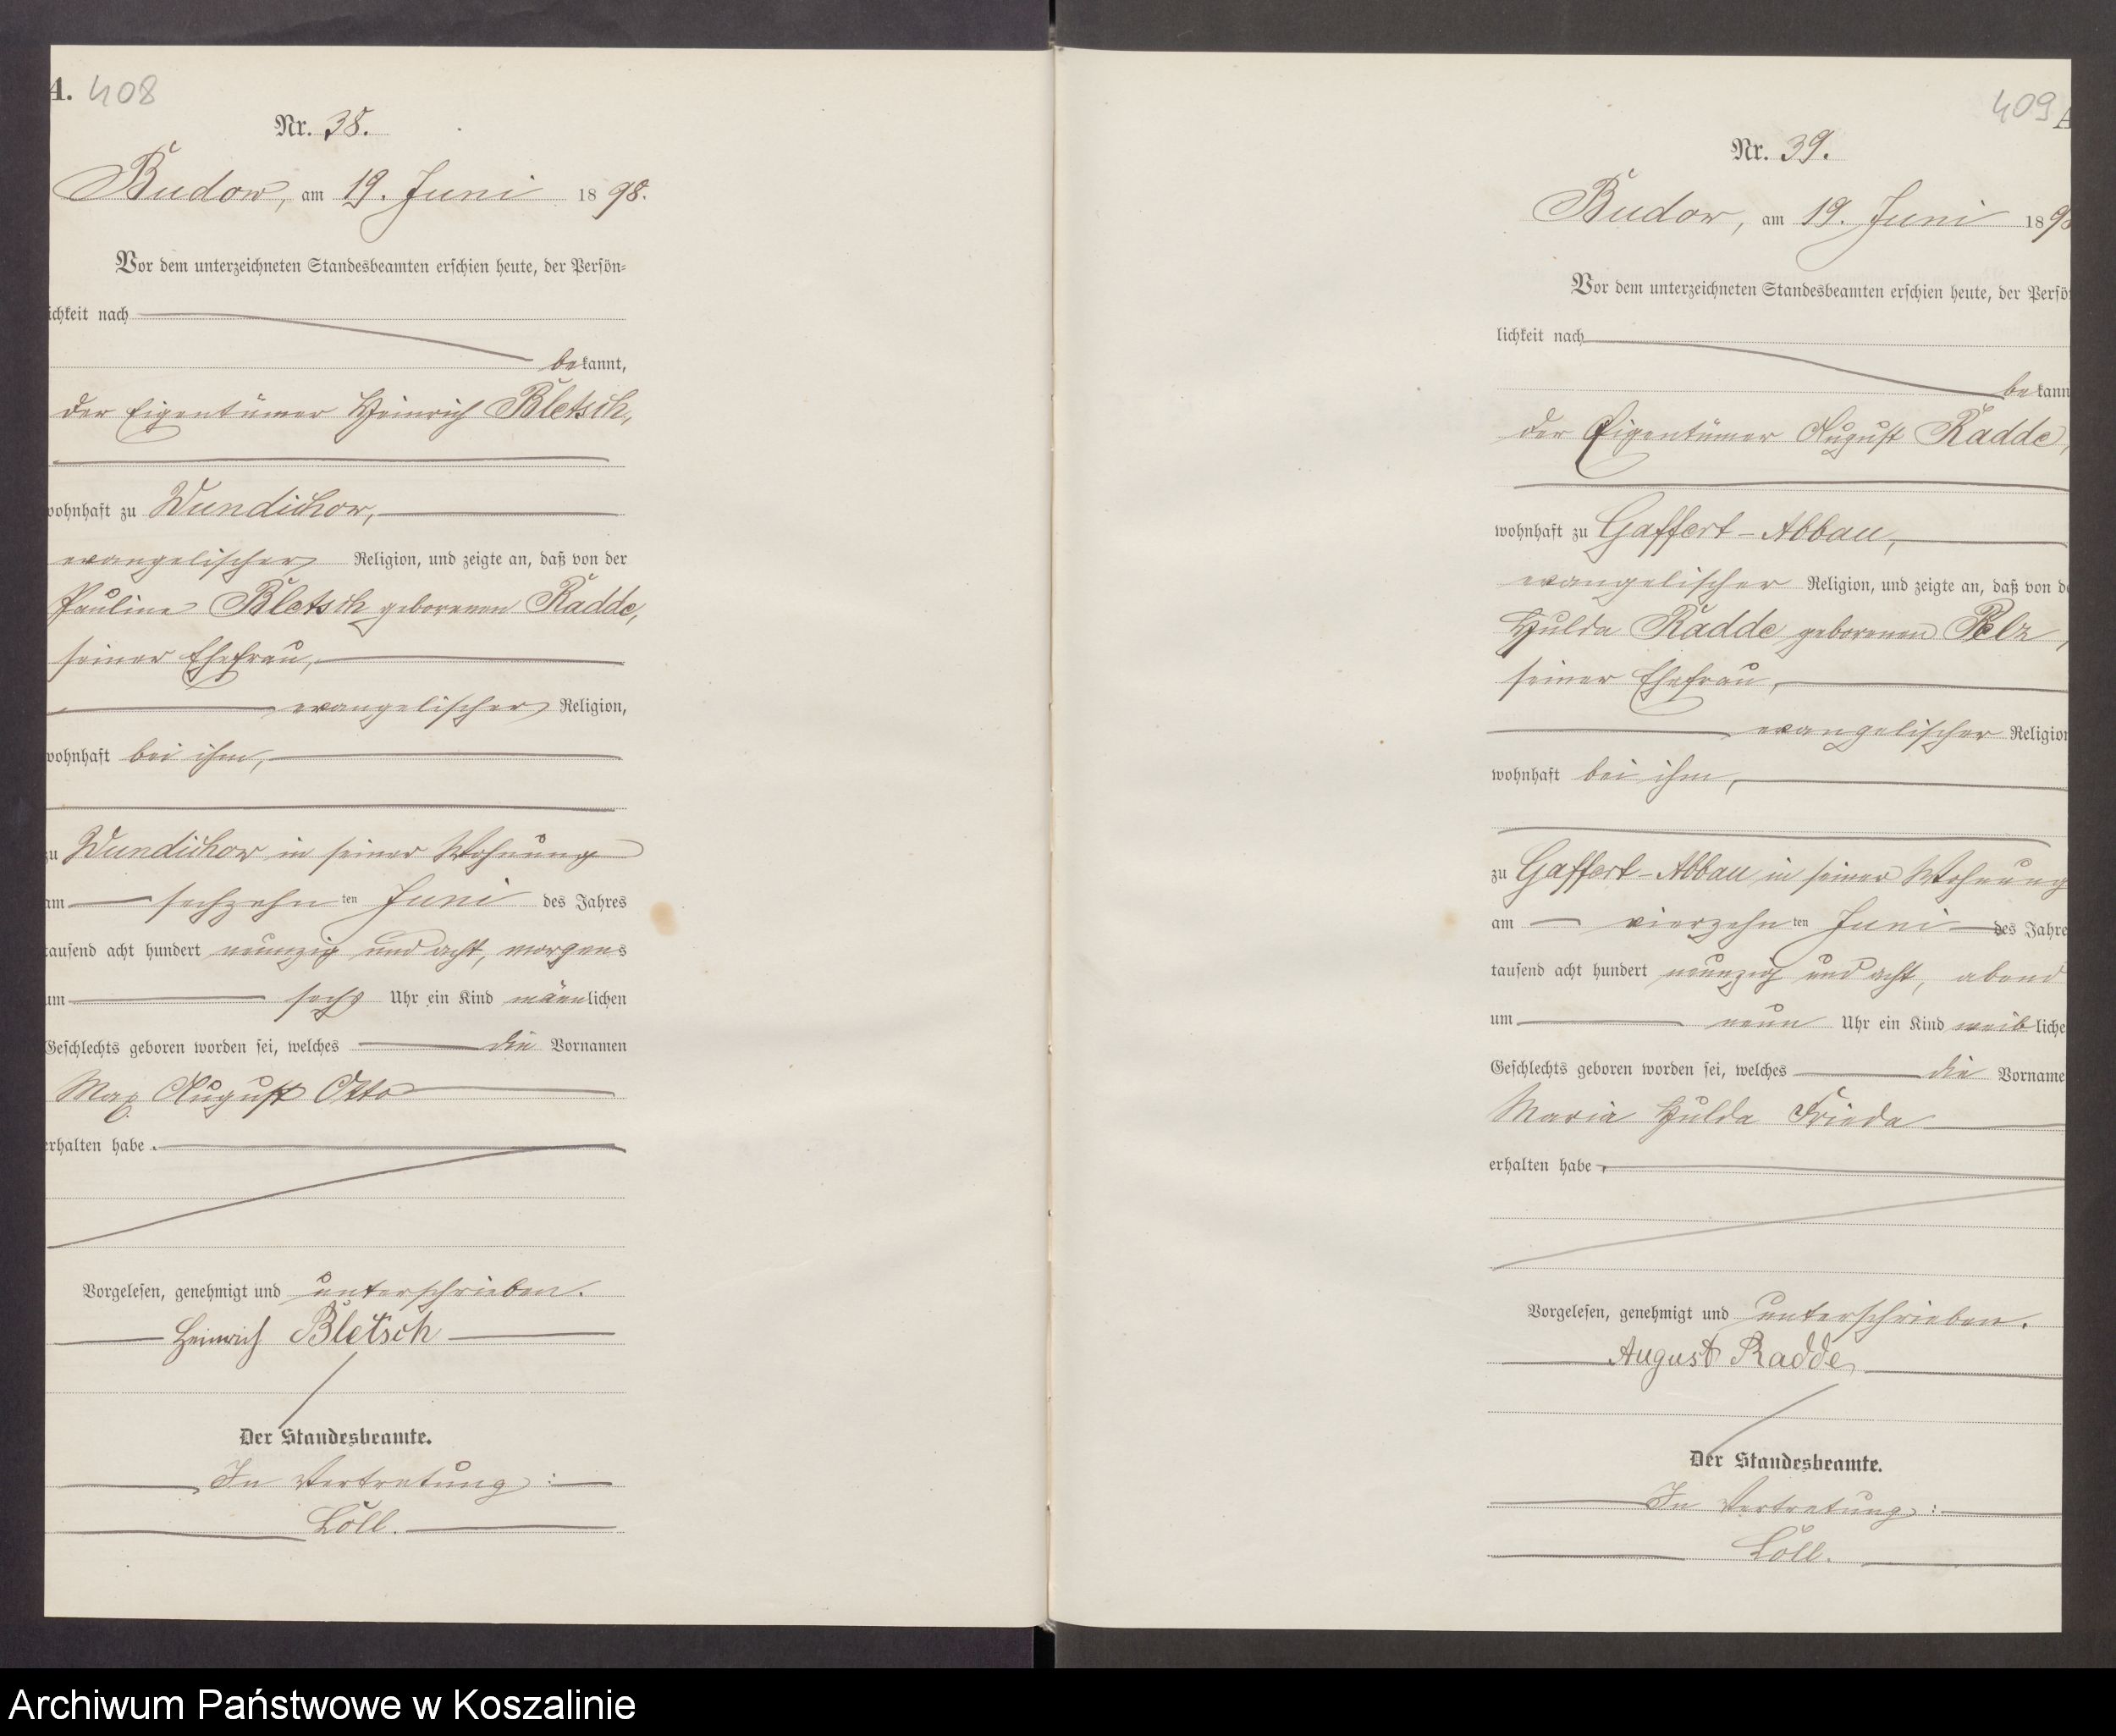 A. 408
Nr. 38.
Budow, am 19. Juni 1898.
Vor dem unterzeichneten Standesbeamten erschien heute, der Persön-
ichkeit nach
bekannt,
der Eigentümer Heinrich Bletsch,
wohnhaft zu Wundichow,
evangelischer Religion, und zeigte an, daß von der
Pauline Bletsch geborenen Radde,
seiner Ehefrau,
evangelischer Religion,
wohnhaft bei ihm,
zu Wundichow in seiner Wohnung
am sechzehn ten Juni des Jahres
tausend acht hundert neunzig und acht, morgens
um sechs Uhr ein Kind männlichen
Geschlechts geboren worden sei, welches die Vornamen
Max August Otto
erhalten habe.
Vorgelesen, genehmigt und unterschrieben.
Heinrich Bletsch
Der Standesbeamte.
In Vertretung:
Löll.
409 A
Nr. 39.
Budow, am 19. Juni 189
Vor dem unterzeichneten Standesbeamten erschien heute, der Persö
lichkeit nach
bekann
der Eigentümer August Radde,
wohnhaft zu Gaffert-Abbau,
evangelischer Religion, und zeigte an, daß von de
Hulda Radde geborenen Pelz,
seiner Ehefrau,
evangelischer Religion
wohnhaft bei ihm,
zu Gaffert-Abbau in seiner Wohnung
am vierzehn ten Juni des Jahre
tausend acht hundert neunzig und acht, abend
um neun Uhr ein Kind weibliche
Geschlechts geboren worden sei, welches die Vorname
Maria Hulda Frieda
erhalten habe.
Vorgelesen, genehmigt und unterschrieben.
August Radde
Der Standesbeamte.
In Vertretung:
Löll.
Archiwum Państwowe w Koszalinie